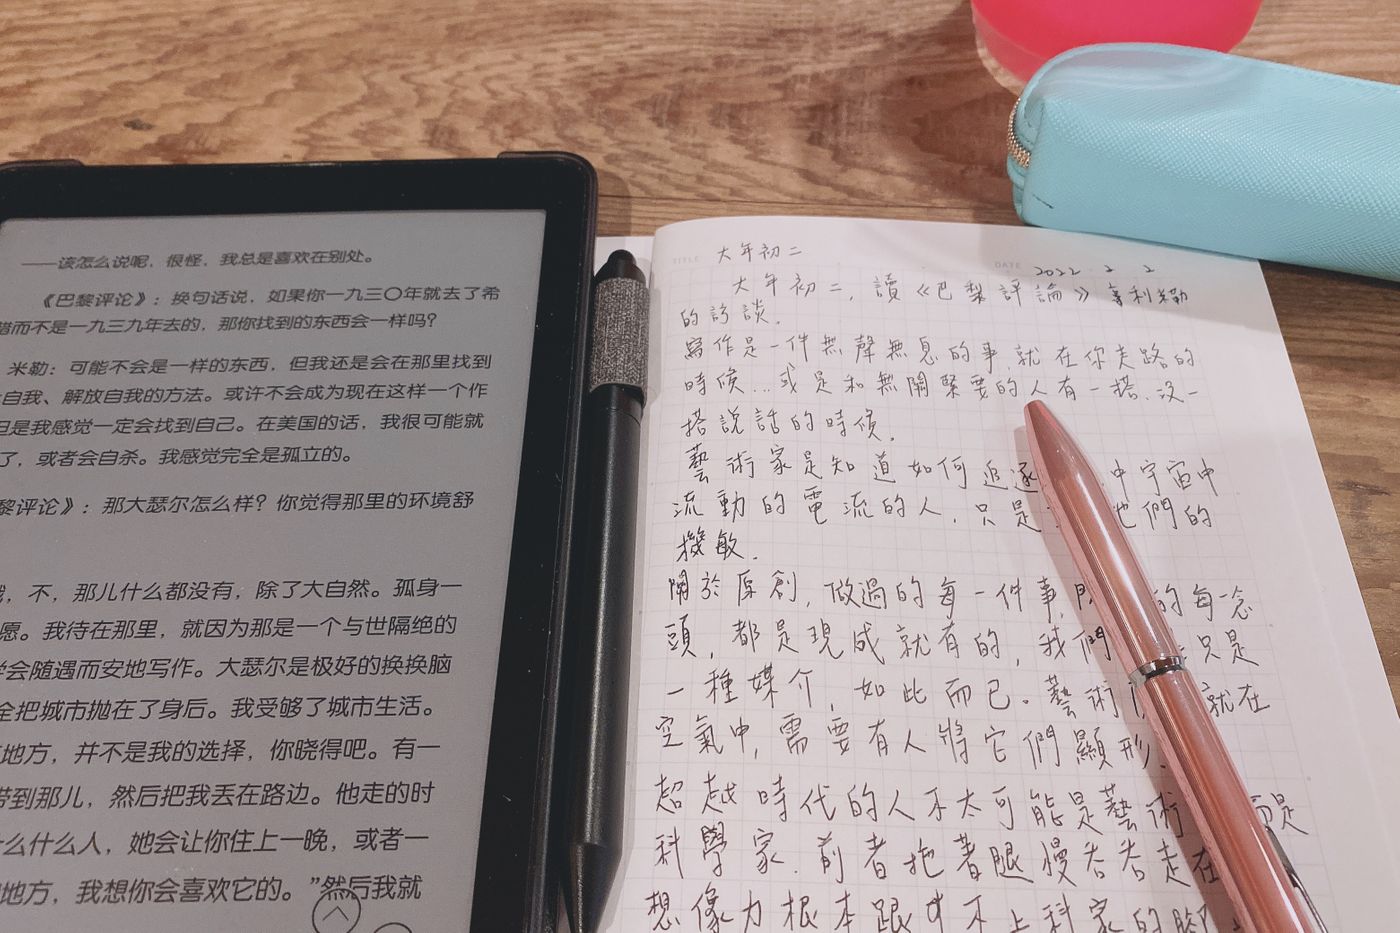 ——该怎么说呢，很怪，我总是喜欢在别处。
《巴黎评论》：换句话说，如果你一九三〇年就去了希
腊而不是一九三九年去的，那你找到的东西会一样吗？
米勒：可能不会是一样的东西，但我还是会在那里找到
自我、解放自我的方法。或许不会成为现在这样一个作
但是我感觉一定会找到自己。在美国的话，我很可能就
了，或者会自杀。我感觉完全是孤立的。
黎评论》：那大瑟尔怎么样？你觉得那里的环境舒
，不，那儿什么都没有，除了大自然。孤身一
愿。我待在那里，就因为那是一个与世隔绝的
学会随遇而安地写作。大瑟尔是极好的换换脑
全把城市抛在了身后。我受够了城市生活。
地方，并不是我的选择，你晓得吧。有一
带到那儿，然后把我丢在路边。他走的时
什么人，她会让你住上一晚，或者一
地方，我想你会喜欢它的。”然后我就
TITLE 大年初二
DATE 2022.2.2
大年初二，讀《巴黎評論》亨利米勒
的訪談。
寫作是一件無聲無息的事，就在你走路的
時候…或是和無關緊要的人有一搭沒一
搭說話的時候。
藝術家是知道如何追逐 中宇宙中
流動的電流的人，只是 他們的
機敏。
關於原創，做過的每一件事， 的每一念
頭，都是現成就有的，我們 只是
一種媒介，如此而已。藝術 就在
空氣中，需要有人將它們顯形。
超越時代的人不太可能是藝術 而是
科學家。前者拖著腿慢吞吞走在
想像力根本跟 不上科 家的腳